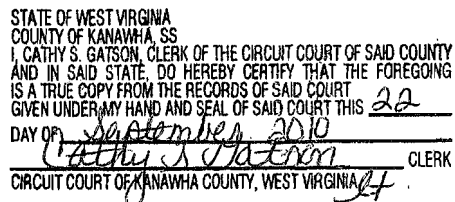 STATE OF WEST VIRGINIA
COUNTY OF KANAWHA, SS
I, CATHY S. GATSON, CLERK OF THE CIRCUIT COURT OF SAID COUNTY
AND IN SAID STATE, DO HEREBY CERTIFY THAT THE FOREGOING
IS A TRUE COPY FROM THE RECORDS OF SAID COURT
GIVEN UNDER MY HAND AND SEAL OF SAID COURT THIS 22
DAY OF September 2010
Cathy S Gatson CLERK
CIRCUIT COURT OF KANAWHA COUNTY, WEST VIRGINIA